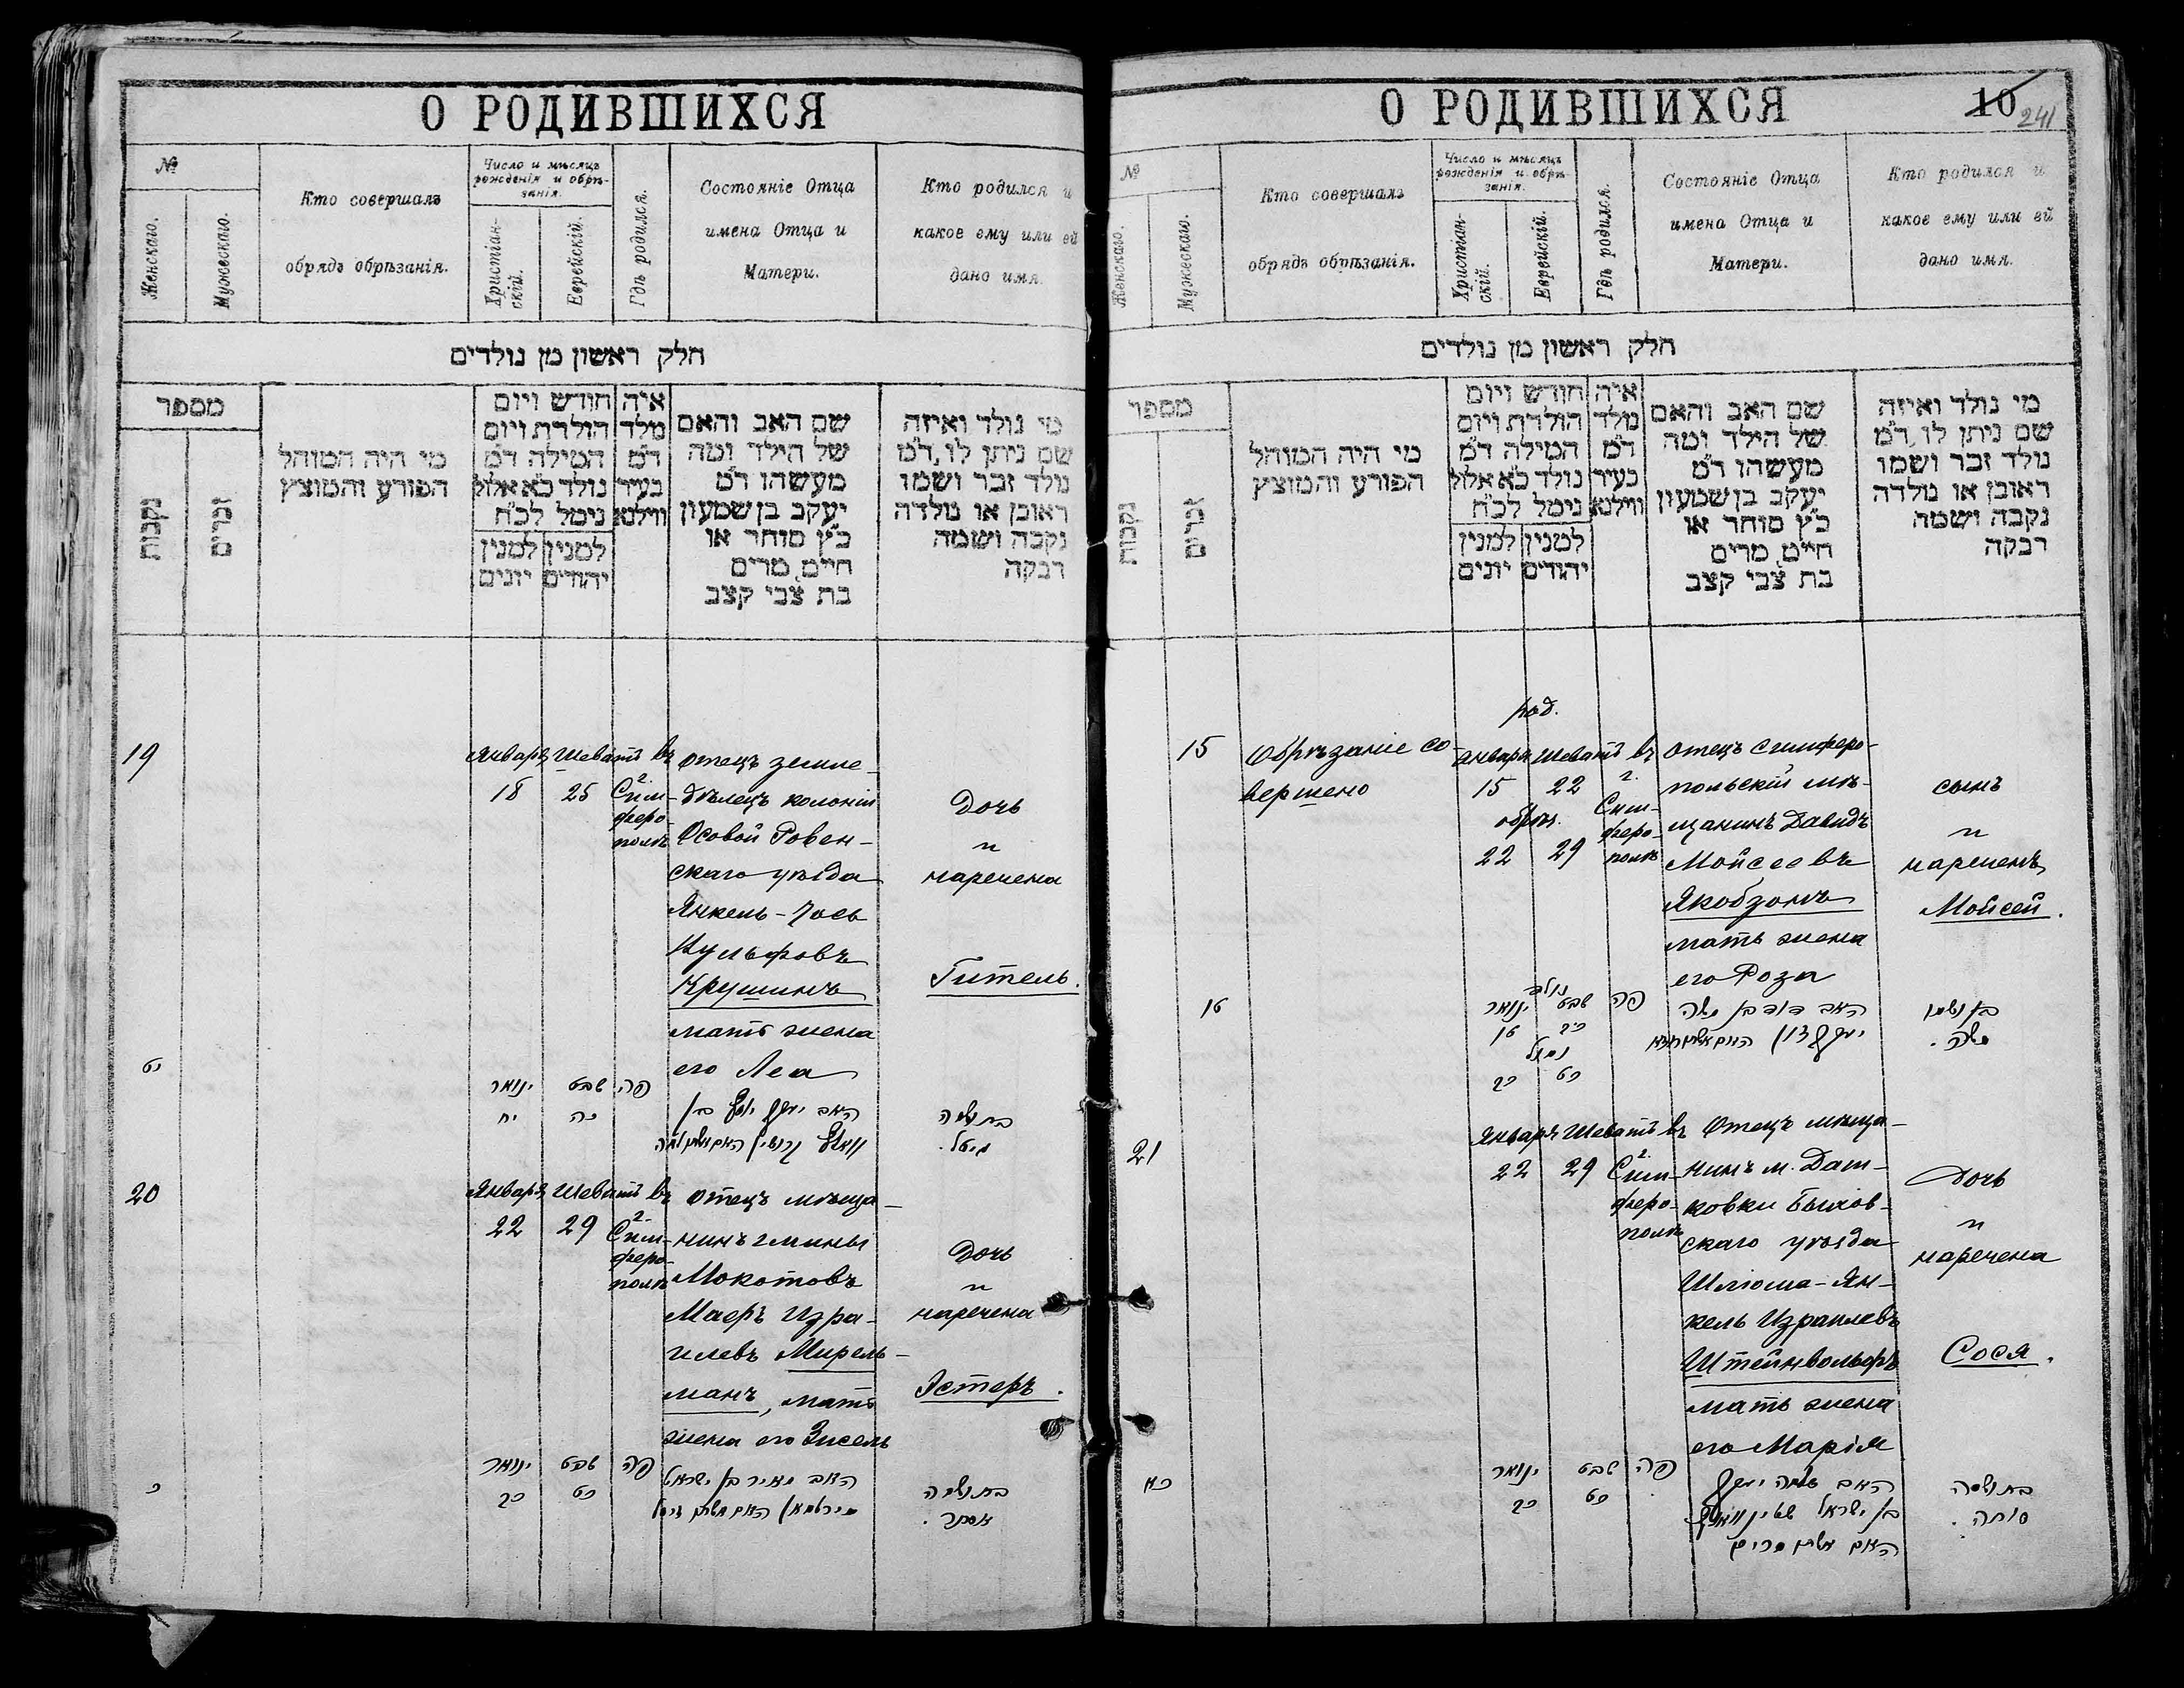 О РОДИВШИХСЯ
№
Женскаго.
Мужескаго.
Кто совершалъ
обрядъ обрѣзанія.
Число и мѣсяцъ
рожденія и обрѣ-
занія.
Христіан-
скій.
Еврейскій.
Гдѣ родился.
Состояніе Отца
имена Отца и
Матери.
Кто родился и
какое ему или ей
дано имя.
חלק ראשון מן נולדים
מספר
נקבות
זכרים
מי היה המוהל
הפורע והמוצץ
חודש ויום
הולדת ויום
המילה ד״מ
נולד כ״א אלול
נימל לכ״ח
למנין למנין
יהודים יונים
איה
נולד
ד״מ
בעיר
ווילנא
שם האב והאם
של הילד ומה
מעשהו ד״מ
יעקב בן שמעון
כ״ץ סוחר או
חייט מרים
בת צבי קצב
מי נולד ואיזה
שם ניתן לו, ד״מ
נולד זכר ושמו
ראובן או נולדה
נקבה ושמה
רבקה
19
Январь Шеватъ въ
18 25 г. Сим-
феро-
полѣ
отецъ земле-
дѣлецъ колоніи
Осовой Ровен-
скаго уѣзда
Янкель-Іось
Вульфовъ
Крушинъ
мать жена
его Леа
Дочь
и
наречена
Гитель.
יט
ינואר שבט פה
יח כה
האב יעקב יוסף בן
וואלף קרושין האם אשתו לאה
בת ושמה
גיטל.
20
Январь Шеватъ въ
22 29 г. Сим-
феро-
полѣ
отецъ мѣща-
нинъ гмины
Мокотовъ
Маеръ Изра-
илевъ Мирель-
манъ, мать
жена его Зисель
Дочь
и
наречена
Эстеръ.
כ
ינואר שבט פה
כב כט
האב מאיר בן ישראל
מירלמאן האם אשתו זיסל
בת ושמה
אסתר.
О РОДИВШИХСЯ
10
241
№
Женскаго.
Мужескаго.
Кто совершалъ
обрядъ обрѣзанія.
Число и мѣсяцъ
рожденія и обрѣ-
занія.
Христіан-
скій.
Еврейскій.
Гдѣ родился.
Состояніе Отца
имена Отца и
Матери.
Кто родился и
какое ему или ей
дано имя.
חלק ראשון מן נולדים
מספר
נקבות
זכרים
מי היה המוהל
הפורע והמוצץ
חודש ויום
הולדת ויום
המילה ד״מ
נולד כ״א אלול
נימל לכ״ח
למנין למנין
יהודים יונים
איה
נולד
ד״מ
בעיר
ווילנא
שם האב והאם
של הילד ומה
מעשהו ד״מ
יעקב בן שמעון
כ״ץ סוחר או
חייט מרים
בת צבי קצב
מי נולד ואיזה
שם ניתן לו, ד״מ
נולד זכר ושמו
ראובן או נולדה
נקבה ושמה
רבקה
15
Обрѣзаніе со-
вершено
род.
Январь Шеватъ въ
15 22 г.
обрѣз. Сим-
феро-
22 29 полѣ
отецъ симферо-
польскій мѣ-
щанинъ Давидъ
Мойсеевъ
Якобзонъ
мать жена
его Роза
сынъ
и
нареченъ
Мойсей.
נולד
ינואר שבט פה
טו כב
נמול
כב כט
האב דוד בן משה
בן ושמו
משה.
21
Январь Шеватъ въ
22 29 г. Сим-
феро-
полѣ
Отецъ мѣща-
нинъ м. Даш-
ковки Быхов-
скаго уѣзда
Шлюма-Ян-
кель Израилевъ
Штейнвольфъ
мать жена
его Марія
Дочь
и
наречена
Сося.
כא
ינואר שבט פה
כב כט
האב שלמה יעקב
בן ישראל שטיינוואלף
האם אשתו מרים
בת ושמה